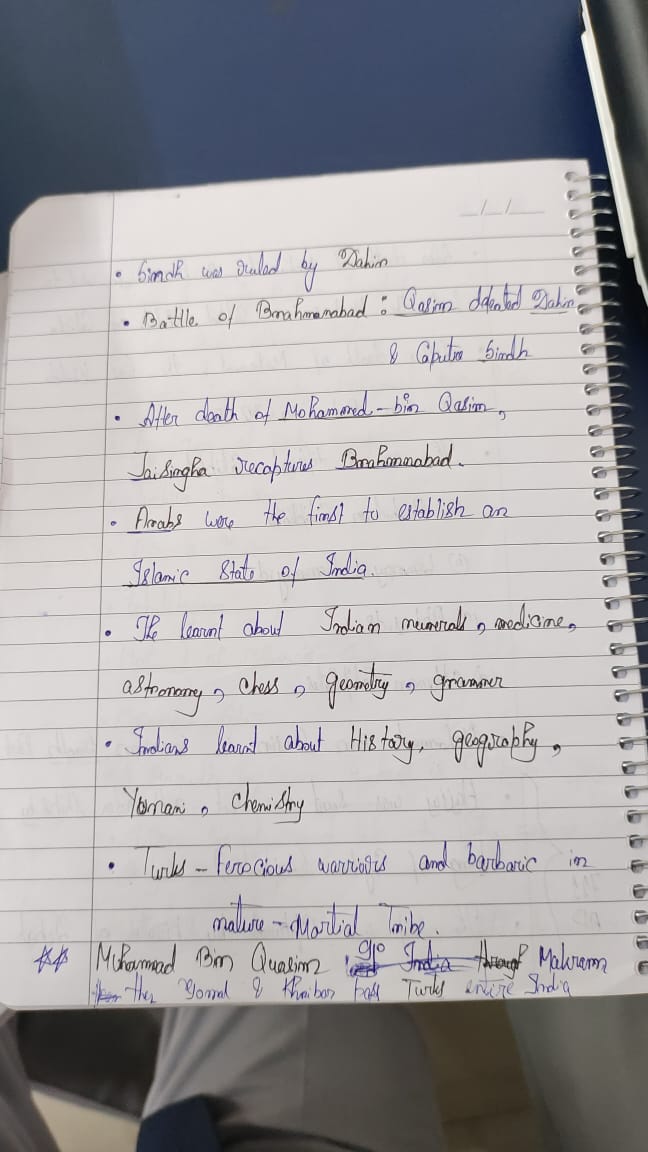 __/__/__
• Sindh was ruled by Dahir
• Battle of Brahmanabad : Qasim defeated Dahir
& Caputre Sindh
• After death of Mohammed-bin Qasim,
Jaisingha recaptures Brahmanabad.
• Arabs were the first to establish an
Islamic State of India.
• The learnt about Indian numerals, medicine,
astronomy, chess, geometry, grammer
• Indians learnt about History, geography,
Yonani, chemistry
• Turks - ferocious warriors and barbaric in
nature - Martial Tribe.
** Muhammad Bin Quasim India through Makran
The Gomal & Khaibar pass Turks entire India